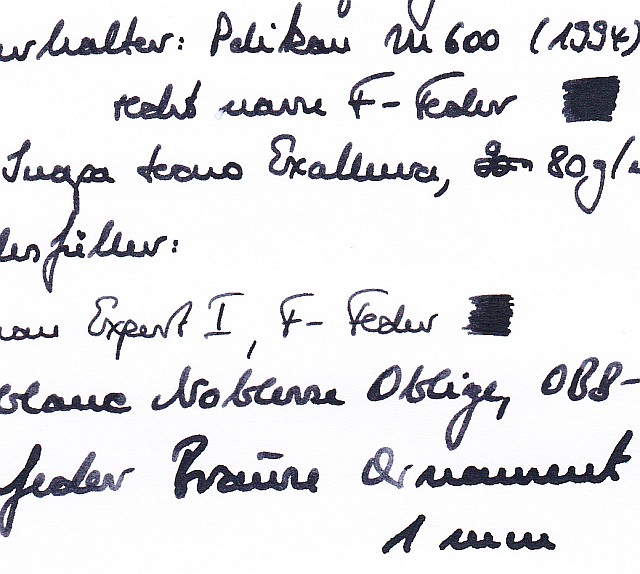 erhalter: Pelikan M 600 (1994)
recht nasse F-Feder
Inapa tecno Exallura, 80g/
lesfüller:
man Expert I, F-Feder
blanc Noblesse Oblige, OBB-
feder Brause Ornament
1 mm